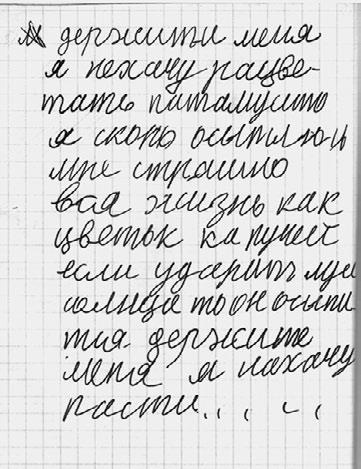 держити меня
я нехачу рацве-
тать патамушто
я скоро осыплюсь
мне страшно
вся жизнь как
цветок
если ударить луч
солнца то он осыпи
тся держите
меня я нехачу
расти....